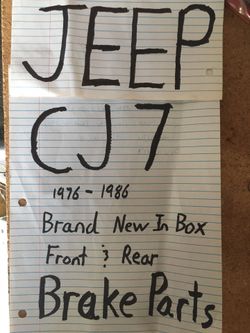 JEEP
CJ7
1976-1986
Brand New In Box
Front & Rear
Brake Parts